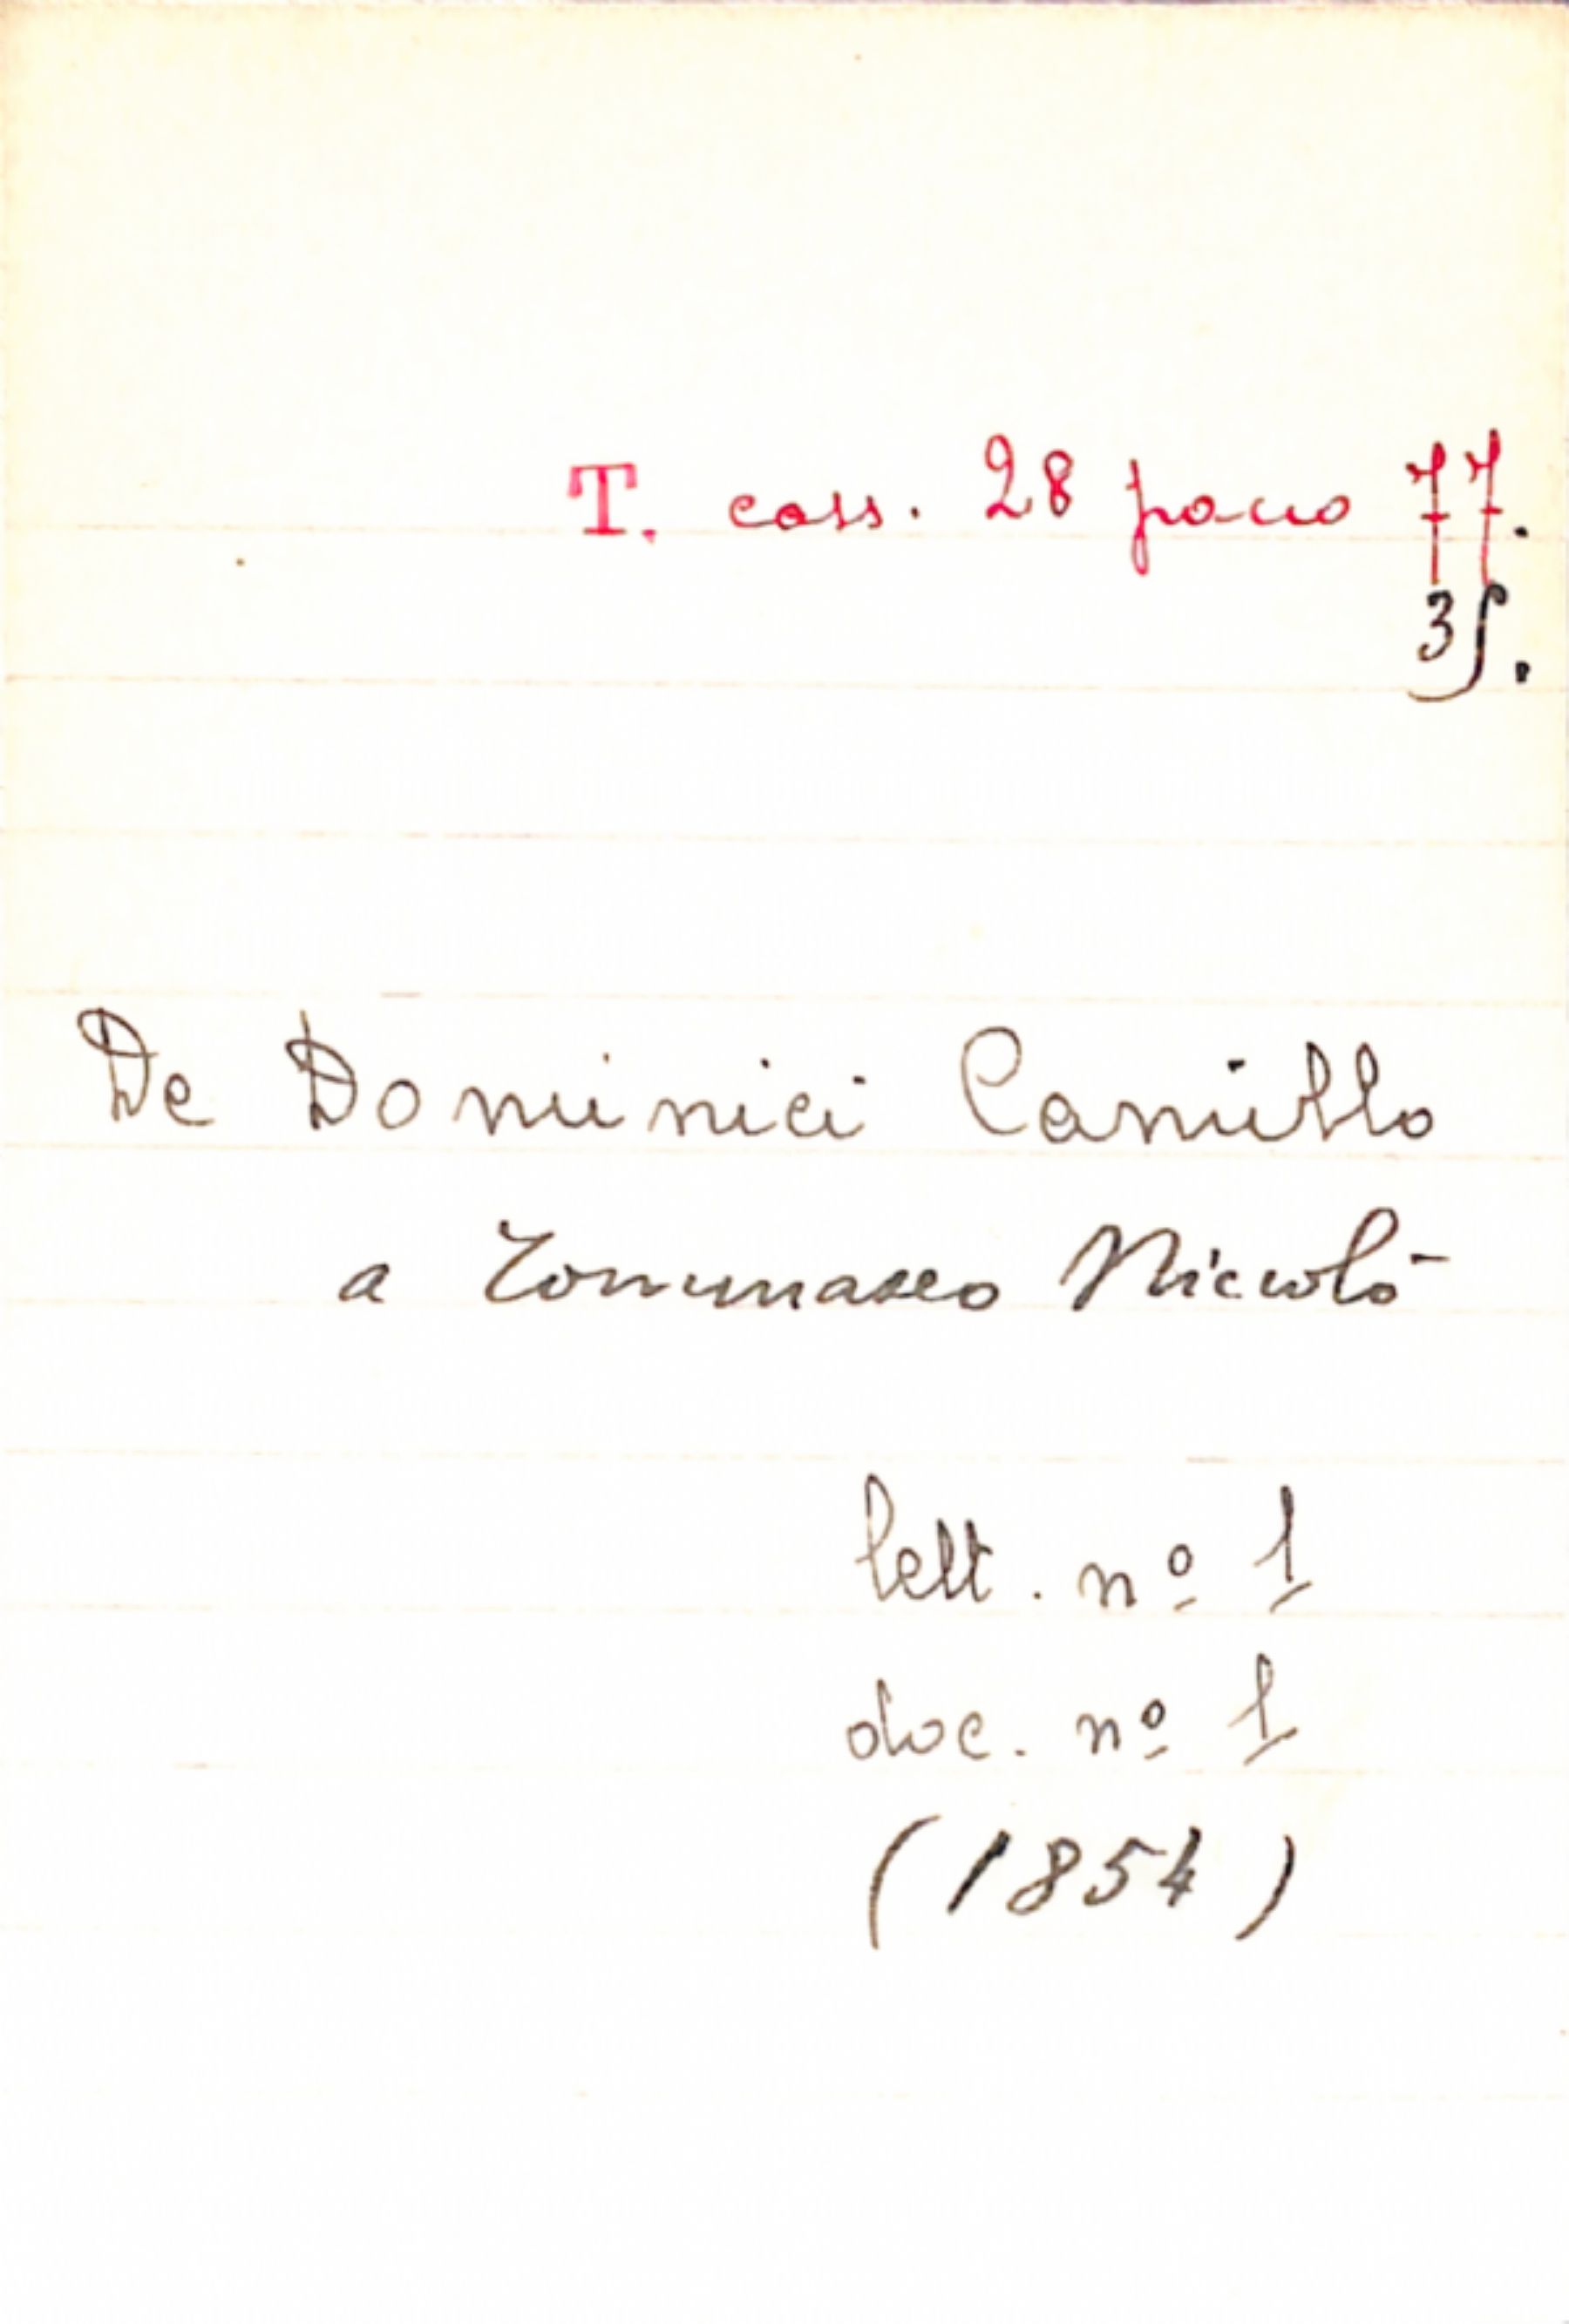 T. cass. 28 pacco 77.
35.
De Dominici Camillo
a Tommaseo Niccolò
lett. nº 1
doc. nº 1
(1854)